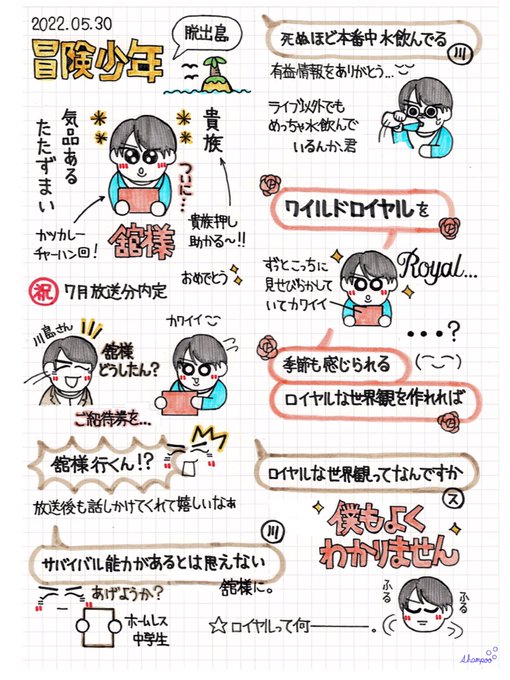 2022.05.30
冒険少年
脱出島
気品ある
たたずまい
ついに…
貴族
カツカレー
チャーハン回!
舘様
貴族押し
助かる〜!!
祝
7月放送分内定
おめでとう
川島さん
舘様
どうしたん?
カワイイ
ご招待券を…
舘様行くん!?
放送後も話しかけてくれて嬉しいなぁ
川
サバイバル能力があるとは思えない
舘様に。
あげようか?
ホームレス
中学生
死ぬほど本番中水飲んでる
川
有益情報をありがとう…
ライブ以外でも
めっちゃ水飲んで
いるんか、君
ワイルドロイヤルを
ずっとこっちに
見せびらかして
いてカワイイ
Royal...
•••?
季節も感じられる
ロイヤルな世界観を作れれば
ロイヤルな世界観ってなんですか
ス
僕もよく
わかりません
ふる
ふる
☆ロイヤルって何―――。
shampoo